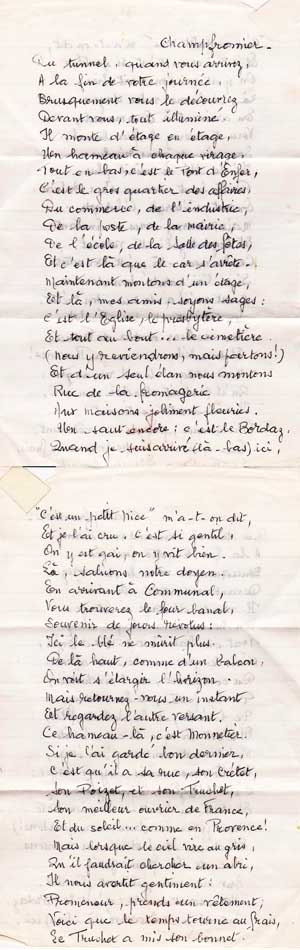 Champfromier -
Du tunnel, quand vous arrivez,
A la fin de votre journée,
Brusquement vous le découvrez
Devant vous, tout illuminé.
Il monte d'étage en étage,
Un hameau à chaque virage,
Tout en bas, c'est le Pont d'Enfer,
C'est le gros quartier des affaires,
Du commerce, de l'industrie,
De la poste, de la mairie,
De l'école, de la Salle des fêtes,
Et c'est là que le car s'arrête.
Maintenant montons d'un étage,
Et là, mes amis, soyons sages :
C'est l'Eglise, le presbytère,
Et tout au bout... le cimetière.
(nous y reviendrons, mais partons!)
Et d'un seul élan nous montons
Rue de la fromagerie
Aux maisons joliment fleuries.
Un saut encore : c'est le Bordaz.
Quand je suis arrivé (là-bas) ici,
"C'est un petit Nice" m'a-t-on dit,
Et je l'ai cru. C'est si gentil,
On y est gai, on y vit bien.
Là, saluons notre doyen.
En arrivant à Communal,
Vous trouverez le four banal,
Souvenir de jours révolus :
Ici le blé ne mûrit plus.
De là haut, comme d'un balcon,
On voit s'élargir l'horizon.
Mais retournez-vous un instant
Et regardez l'autre versant.
Ce hameau-là, c'est Monnetier.
Si je l'ai gardé bon dernier,
C'est qu'il a sa rue, son Crêtet,
Son Poizet, et son Truchet,
Son meilleur ouvrier de France,
Et du soleil... comme en Provence!
Mais lorsque le ciel vire au gris,
Qu'il faudrait chercher un abri,
Il nous avertit gentiment :
Promeneur, prends un vêtement,
Voici que le temps tourne au frais,
Le Truchet a mis son bonnet.